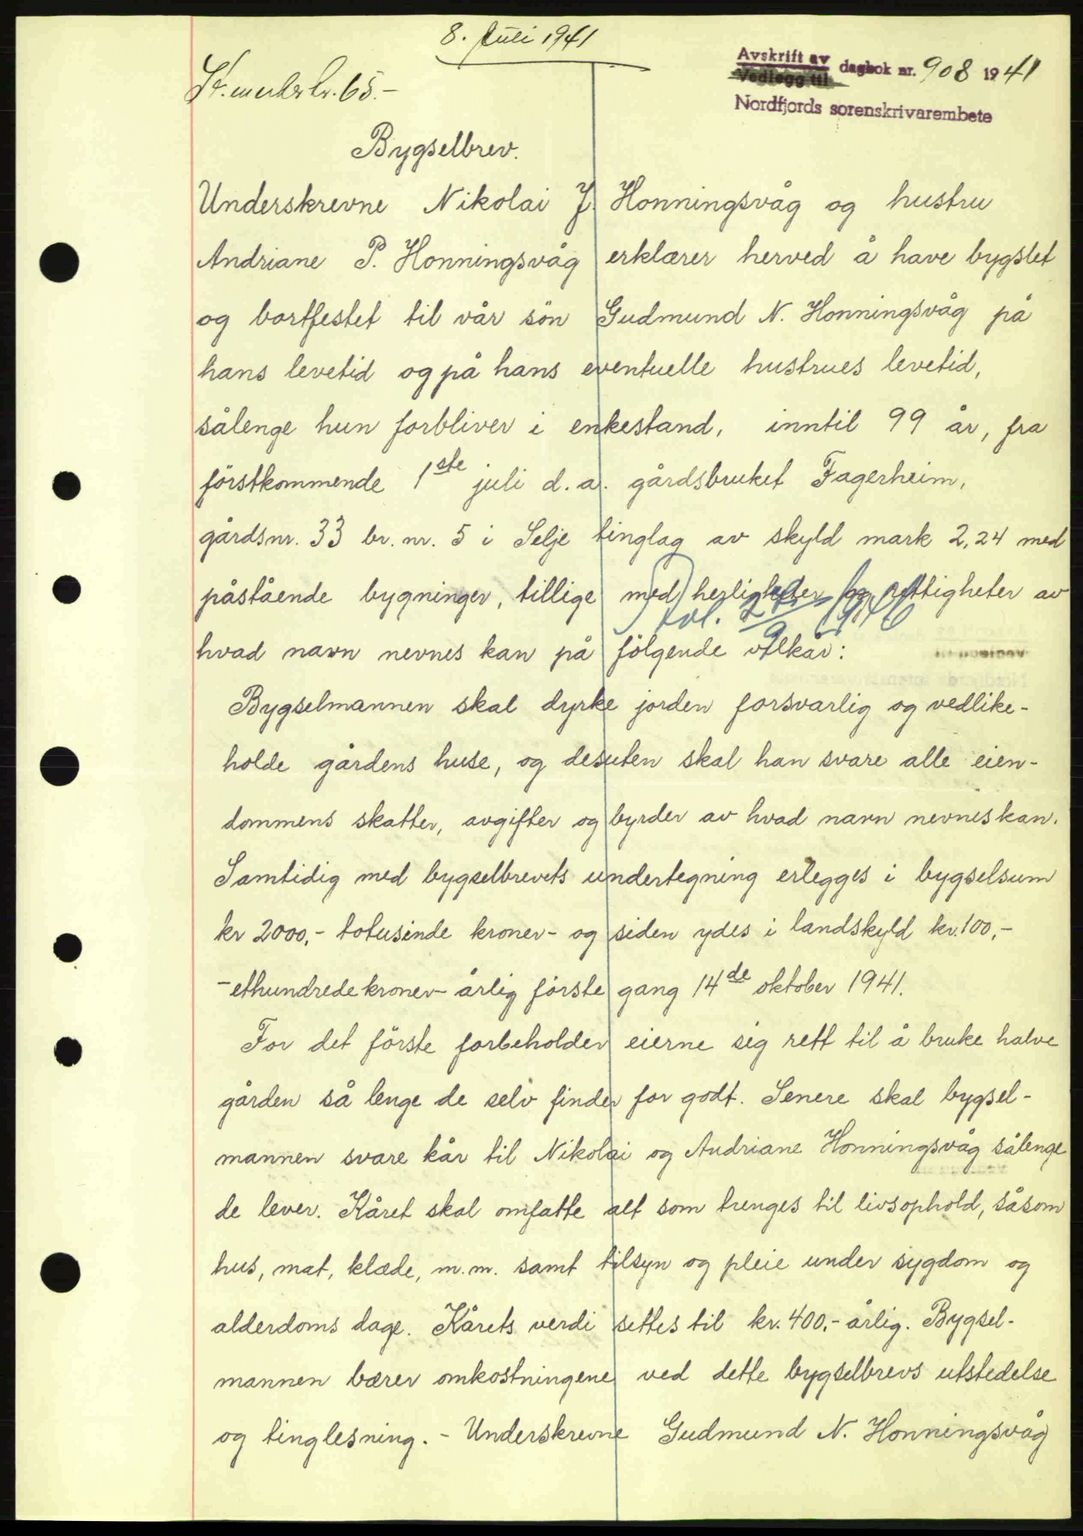 8. Juli 1941
St. merke kr. 65.-
Avskrift av
Vedlegg til
dagbok nr. 908 1941
Nordfjords sorenskrivarembete
Bygselbrev.
Underskrevne Nikolai J. Honningsvåg og hustru
Andriane P. Honningsvåg erklærer herved å have bygslet
og bortfestet til vår sön Gudmund N. Honningsvåg på
hans levetid og på hans eventuelle hustrues levetid,
sålenge hun forbliver i enkestand, inntil 99 år, fra
förstkommende 1ste juli d.a. gårdsbruket Fagerheim,
gårdsnr. 33 br. nr. 5 i Selje tinglag av skyld mark 2,24 med
påstående bygninger, tillige med herligheter og rettigheter av
hvad navn nevnes kan på fölgende vilkår:
Bygselmannen skal dyrke jorden forsvarlig og vedlike-
holde gårdens huse, og desuten skal han svare alle eien-
dommens skatter, avgifter og byrder av hvad navn nevnes kan.
Samtidig med bygselbrevets undertegning erlegges i bygselsum
kr 2000,- totusinde kroner- og siden ydes i landskyld kr. 100,-
-ethundrede kroner- årlig förste gang 14de oktober 1941.
For det förste forbeholder eierne sig rett til å bruke halve
gården så lenge de selv finder for godt. Senere skal bygsel-
mannen svare kår til Nikolai og Andriane Honningsvåg sålenge
de lever. Kåret skal omfatte alt som trenges til livsophold, såsom
hus, mat, klæde, m.m. samt tilsyn og pleie under sygdom og
alderdoms dage. Kårets verdi settes til kr. 400,- årlig. Bygsel-
mannen bærer omkostningene ved dette bygselbrevs utstedelse
og tinglesning. - Underskrevne Gudmund N. Honningsvåg